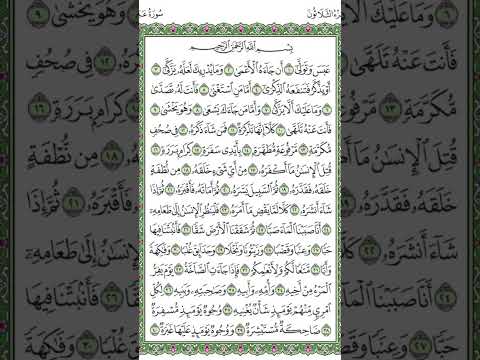 بِسْمِ ٱللَّهِ ٱلرَّحْمَٰنِ ٱلرَّحِيمِ
عَبَسَ وَتَوَلَّىٰٓ ١ أَن جَآءَهُ ٱلْأَعْمَىٰ ٢ وَمَا يُدْرِيكَ لَعَلَّهُۥ يَزَّكَّىٰٓ ٣
أَوْ يَذَّكَّرُ فَتَنفَعَهُ ٱلذِّكْرَىٰٓ ٤ أَمَّا مَنِ ٱسْتَغْنَىٰ ٥ فَأَنتَ لَهُۥ تَصَدَّىٰ ٦
وَمَا عَلَيْكَ أَلَّا يَزَّكَّىٰ ٧ وَأَمَّا مَن جَآءَكَ يَسْعَىٰ ٨ وَهُوَ يَخْشَىٰ ٩
فَأَنتَ عَنْهُ تَلَهَّىٰ ١٠ كَلَّآ إِنَّهَا تَذْكِرَةٌ ١١ فَمَن شَآءَ ذَكَرَهُۥ ١٢ فِى صُحُفٍ
مُّكَرَّمَةٍ ١٣ مَّرْفُوعَةٍ مُّطَهَّرَةٍۭ ١٤ بِأَيْدِى سَفَرَةٍ ١٥ كِرَامٍۭ بَرَرَةٍ ١٦
قُتِلَ ٱلْإِنسَٰنُ مَآ أَكْفَرَهُۥ ١٧ مِنْ أَىِّ شَىْءٍ خَلَقَهُۥ ١٨ مِن نُّطْفَةٍ
خَلَقَهُۥ فَقَدَّرَهُۥ ١٩ ثُمَّ ٱلسَّبِيلَ يَسَّرَهُۥ ٢٠ ثُمَّ أَمَاتَهُۥ فَأَقْبَرَهُۥ ٢١ ثُمَّ إِذَا
شَآءَ أَنشَرَهُۥ ٢٢ كَلَّا لَمَّا يَقْضِ مَآ أَمَرَهُۥ ٢٣ فَلْيَنظُرِ ٱلْإِنسَٰنُ إِلَىٰ طَعَامِهِۦٓ
٢٤ أَنَّا صَبَبْنَا ٱلْمَآءَ صَبًّا ٢٥ ثُمَّ شَقَقْنَا ٱلْأَرْضَ شَقًّا ٢٦ فَأَنۢبَتْنَا فِيهَا
حَبًّا ٢٧ وَعِنَبًا وَقَضْبًا ٢٨ وَزَيْتُونًا وَنَخْلًا ٢٩ وَحَدَآئِقَ غُلْبًا ٣٠ وَفَٰكِهَةً
وَأَبًّا ٣١ مَّتَٰعًا لَّكُمْ وَلِأَنْعَٰمِكُمْ ٣٢ فَإِذَا جَآءَتِ ٱلصَّآخَّةُ ٣٣ يَوْمَ يَفِرُّ
ٱلْمَرْءُ مِنْ أَخِيهِ ٣٤ وَأُمِّهِۦ وَأَبِيهِ ٣٥ وَصَٰحِبَتِهِۦ وَبَنِيهِ ٣٦ لِكُلِّ
ٱمْرِئٍ مِّنْهُمْ يَوْمَئِذٍ شَأْنٌ يُغْنِيهِ ٣٧ وُجُوهٌ يَوْمَئِذٍ مُّسْفِرَةٌ
٣٨ ضَاحِكَةٌ مُّسْتَبْشِرَةٌ ٣٩ وَوُجُوهٌ يَوْمَئِذٍ عَلَيْهَا غَبَرَةٌ ٤٠